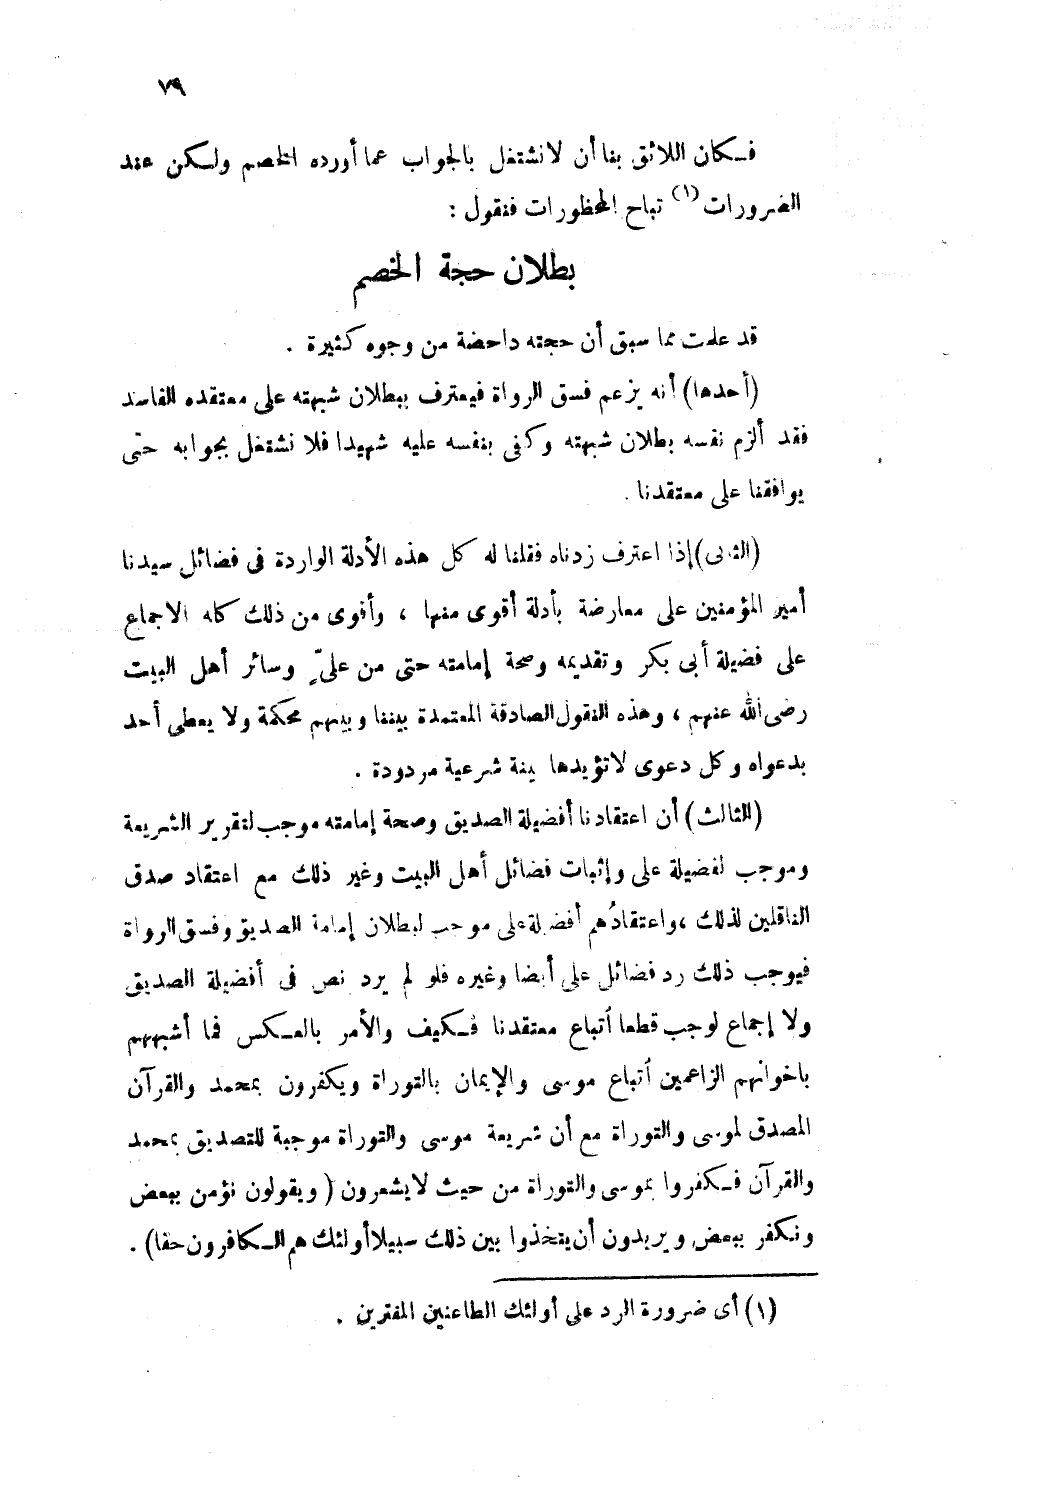 ٧٩
فـكان اللائق بنا أن لا نشتغل بالجواب عما أورده الخصم ولـكن عند
الضرورات (١) تباح المحظورات فنقول :
بطلان حجة الخصم
قد علمت مما سبق أن حجته داحضة من وجوه كثيرة .
(أحدها) أنه يزعم فسق الرواة فيعترف ببطلان شبهته على معتقده الفاسد
فقد ألزم نفسه بطلان شبهته وكفى بنفسه عليه شهيدا فلا نشتغل بجوابه حتى
يوافقنا على معتقدنا .
(الثانى) إذا اعترف زدناه فقلنا له كل هذه الأدلة الواردة فى فضائل سيدنا
أمير المؤمنين على معارضة بأدلة أقوى منها ، وأقوى من ذلك كله الاجماع
على فضيلة أبى بكر وتقديمه وصحة إمامته حتى من علىّ وسائر أهل البيت
رضى الله عنهم ، وهذه النقول الصادقة المعتمدة بيننا وبينهم محكمة ولا يعطى أحد
بدعواه وكل دعوى لا تؤيدها بينة شرعية مردودة .
(الثالث) أن اعتقادنا أفضيلة الصديق وصحة إمامته موجب لتقرير الشريعة
وموجب لفضيلة على وإثبات فضائل أهل البيت وغير ذلك مع اعتقاد صدق
الناقلين لذلك ، واعتقادُهم أفضيلة على موجب لبطلان إمامة الصديق وفسق الرواة
فيوجب ذلك رد فضائل على أيضا وغيره فلو لم يرد نص فى أفضيلة الصديق
ولا إجماع لوجب قطعا اُتباع معتقدنا فـكيف والأمر بالعـكس فما أشبههم
باخوانهم الزاعمين اُتباع موسى والإيمان بالتوراة ويكفرون بمحمد والقرآن
المصدق لموسى والتوراة مع أن شريعة موسى والتوراة موجبة للتصديق بمحمد
والقرآن فـكفروا بموسى والتوراة من حيث لا يشعرون ( ويقولون نؤمن ببعض
ونكفر ببعض ويريدون أن يتخذوا بين ذلك سبيلا أولئك هم الـكافرون حقا) .
(١) أى ضرورة الرد على أولئك الطاعنين المفترين .